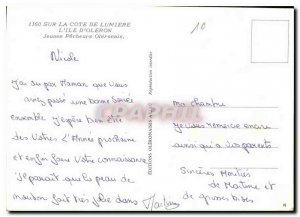 1160 SUR LA COTE DE LUMIERE
L'ILE D'OLERON
Jeunes Pêcheurs Oléronais.
10
Nicole
J'ai su par Maman que vous
avez passé une bonne soirée
ensemble j'espère bien être
des Votres l'Année prochaine
et enfin faire votre connaissance
il paraît que la peau de
mouton fait très jolie dans
ma chambre
je vous remercie encore
ainsi qu'à vos parents
Sincères Amitiés
de Martine et
de grosses bises
Reproduction interdite
EDITIONS